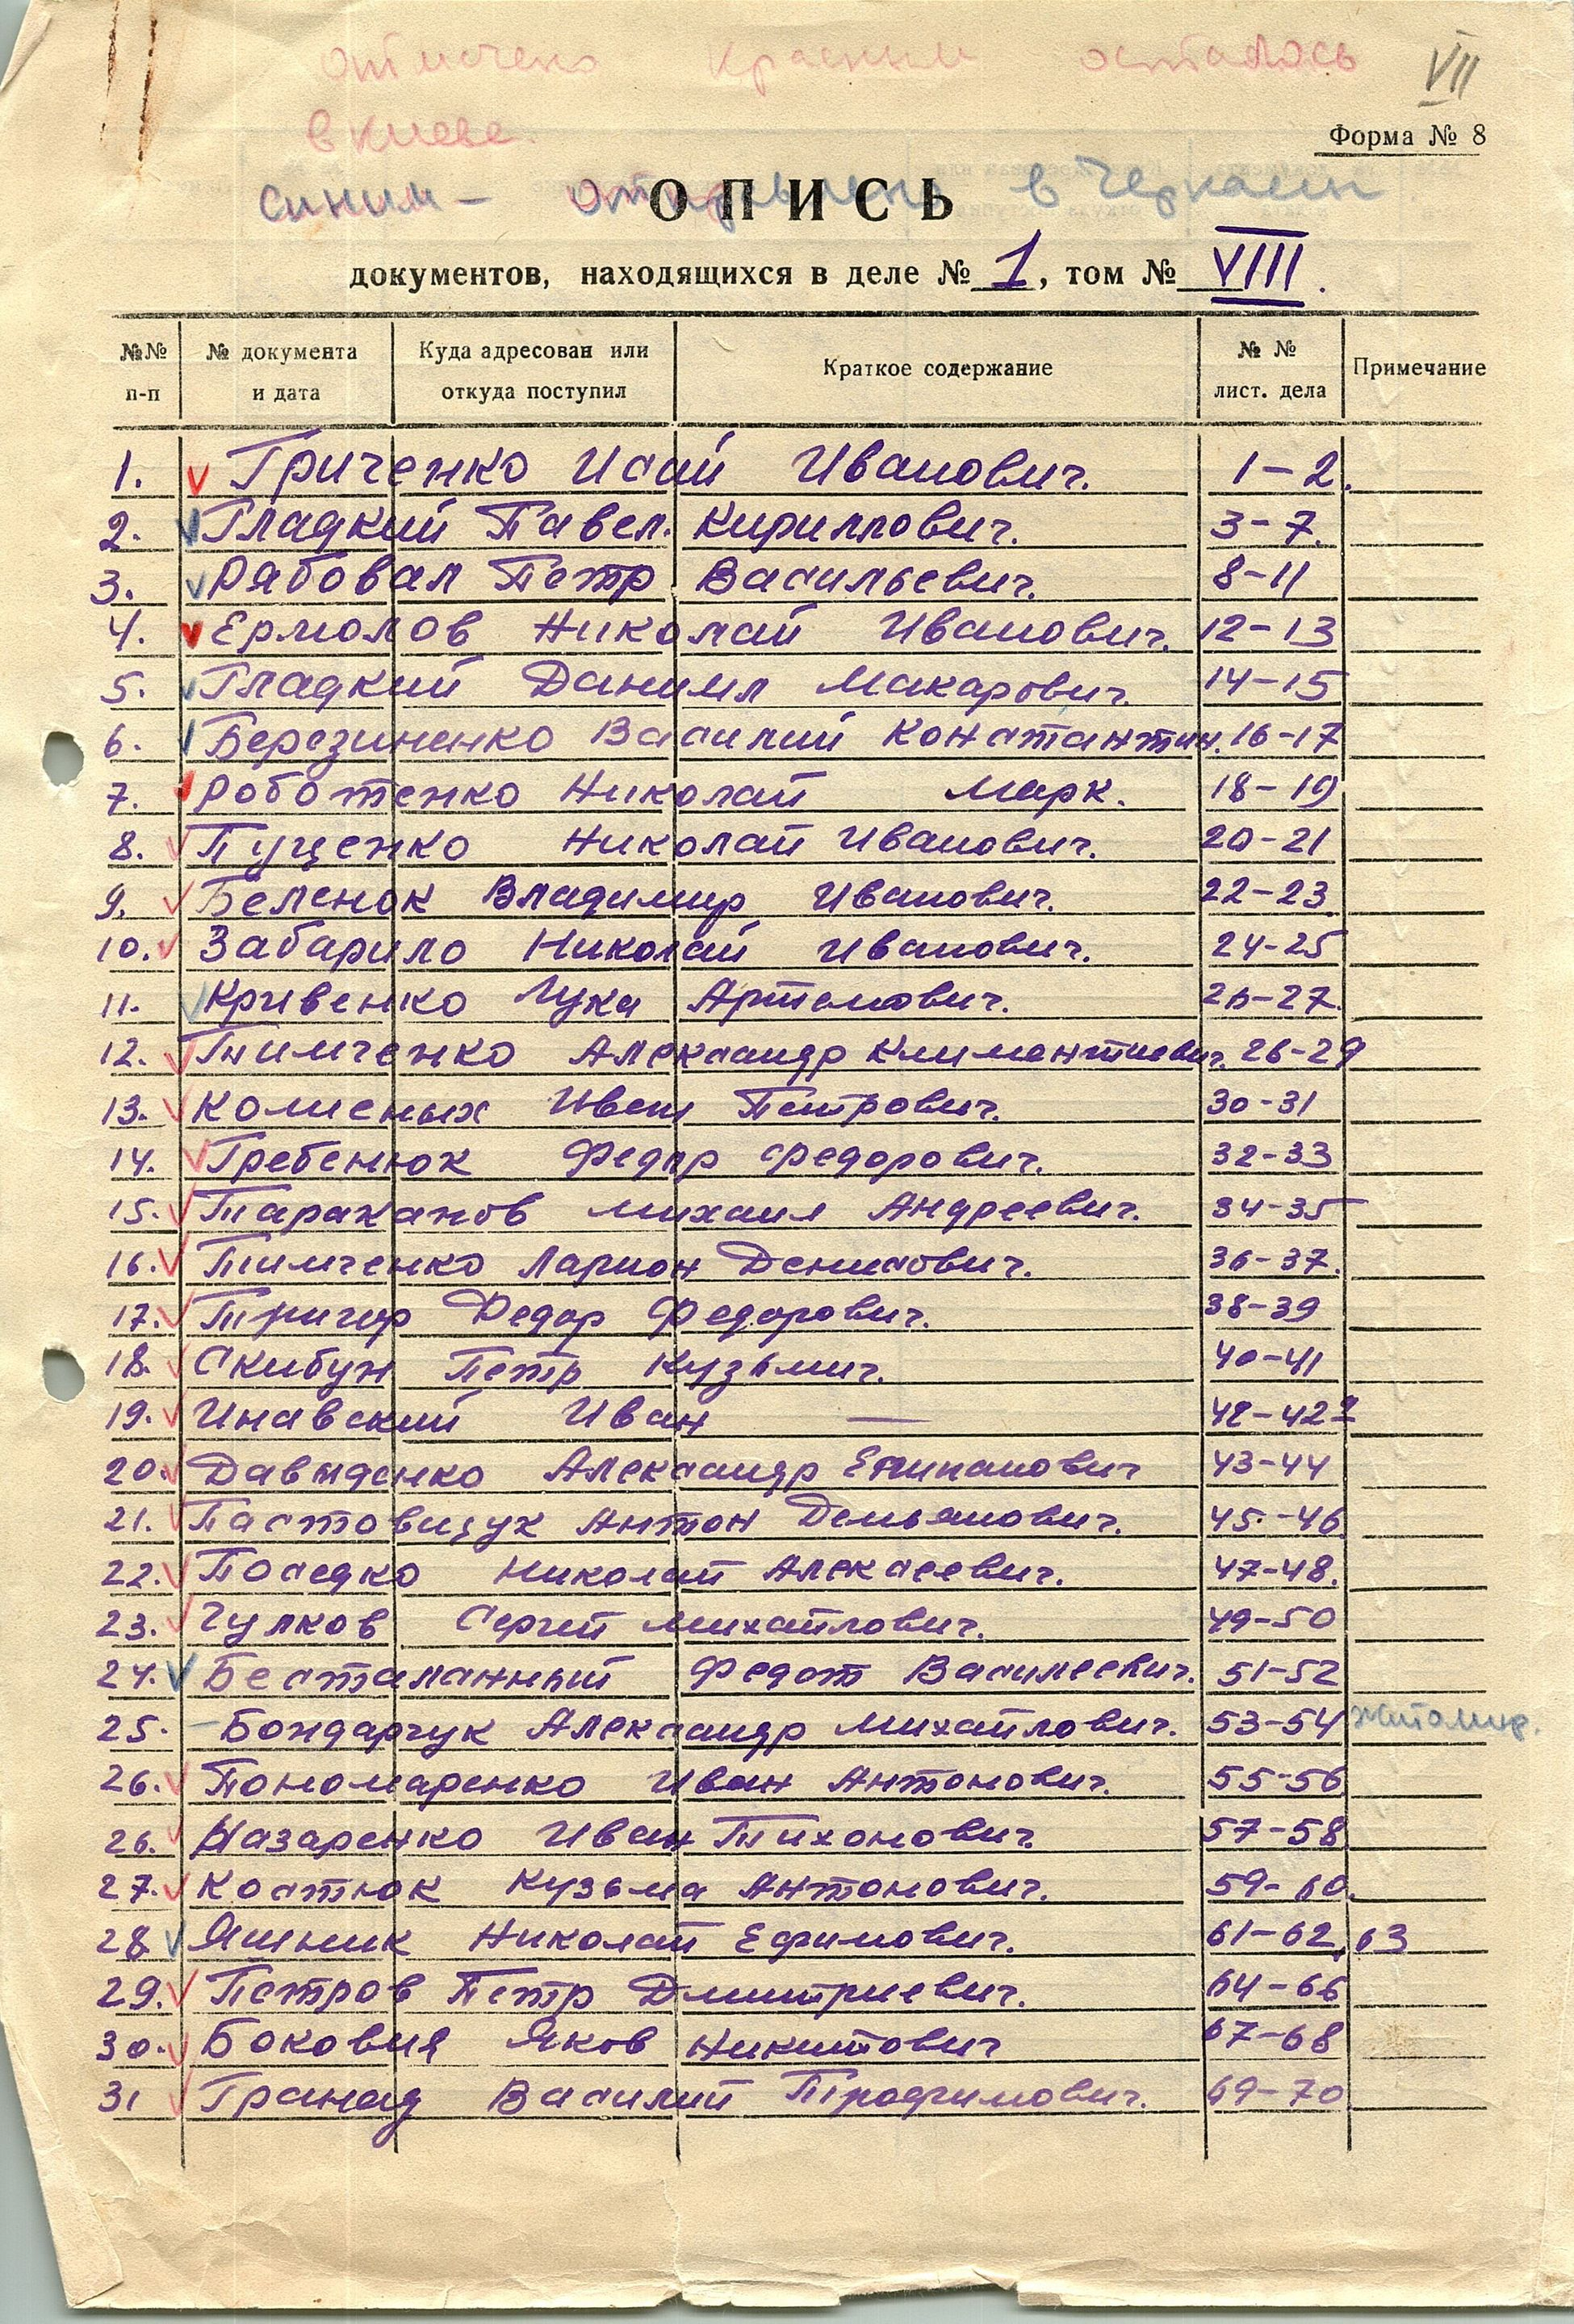 отмечено красным осталось VII
в Киеве.
Форма № 8
синим - отправлено в Черкассы
ОПИСЬ
документов, находящихся в деле № 1, том № VIII.
№№ п-п № документа и дата Куда адресован или откуда поступил Краткое содержание № № лист. дела Примечание
1. v Гриченко Исай Иванович. 1-2.
2. v Гладкий Павел. Кириллович. 3-7.
3. v Рябовал Петр Васильевич. 8-11
4. v Ермолов Николай Иванович. 12-13
5. v Гладкий Даниил Макарович. 14-15
6. v Березиненко Василий Константин. 16-17
7. v Роботенко Николай Марк. 18-19
8. v Пущенко Николай Иванович. 20-21
9. v Беленок Владимир Иванович. 22-23.
10. v Забарило Николай Иванович. 24-25
11. v Кривенко Лука Артемович. 26-27.
12. v Тимченко Александр Климентиевич. 28-29
13. v Коменых Иван Петрович. 30-31
14. v Гребенюк Федор Федорович. 32-33
15. v Тараканов Михаил Андреевич. 34-35
16. v Тимченко Ларион Денисович. 36-37.
17. v Григор Федор Федорович. 38-39
18. v Скибун Петр Кузьмич. 40-41
19. v Инавский Иван — 42-42
20. v Давыденко Александр Епипанович 43-44
21. v Пастовищук Антон Демьянович. 45-46
22. v Поседко Николай Алексеевич. 47-48.
23. v Чулков Сергей Михайлович. 49-50
24. v Бесталанный Федот Васильевич. 51-52
25. - Бондарчук Александр Михайлович. 53-54 Житомир.
26. v Пономаренко Иван Антонович. 55-56
26. v Назаренко Иван Тихонович. 57-58
27. v Костюк Кузьма Антонович. 59-60.
28 v Яшник Николай Ефимович. 61-62, 63
29. v Петров Петр Дмитриевич. 64-66
30. v Боковня Яков Никитович 67-68
31 v Гранад Василий Трофимович. 69-70